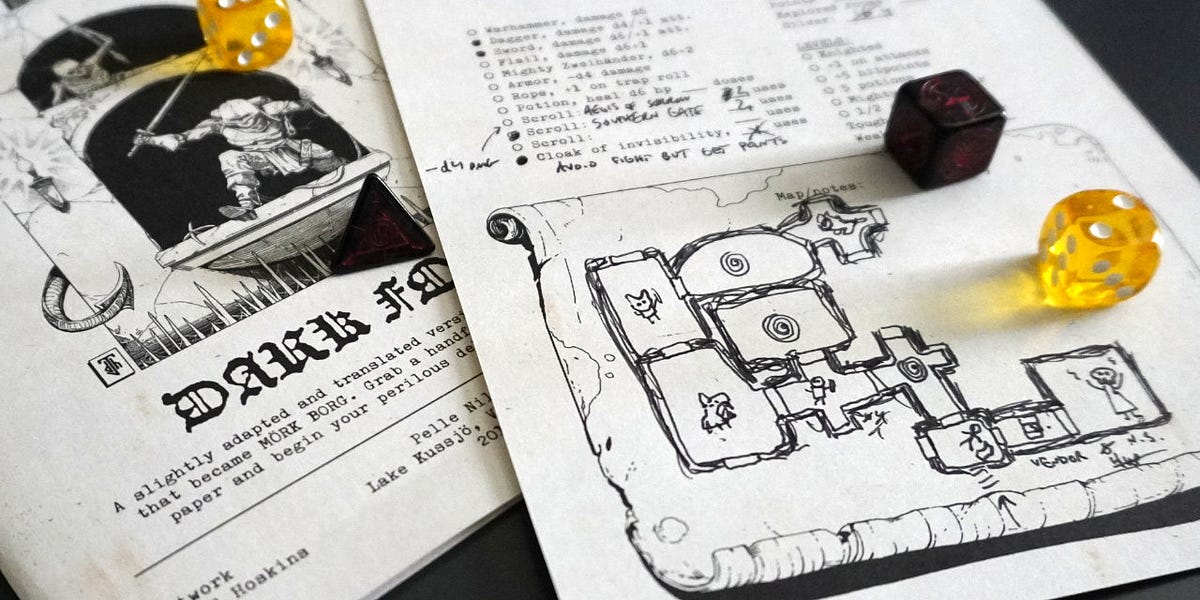 DARK FO
A slightly adapted and translated vers
that became MÖRK BORG. Grab a handf
paper and begin your perilous de
Pelle Nil
Lake Kussjö,
201
twork
Hoskina
Warhammer, damage d6
Dagger, damage d4/-1 att.
Sword, damage d6/-1 att.
Flail, damage d6+1
Mighty Zweihänder, d6+2
Armor, -d4 damage
Rope, +1 on trap roll
Potion, heal d6 hp doses
Scroll: AEGIS OF SORROW uses
Scroll: SOUTHERN GATE uses
Cloak of invisibility, uses
-d4 DMG
AVOID FIGHT BUT GET POINTS
Explored
Silver:
Levels
Knighted
+1 on attacks
+5 hitpoints
5 potions
Might
1/2
Toug
Weak
Map/notes:
VENDOR
N.S.